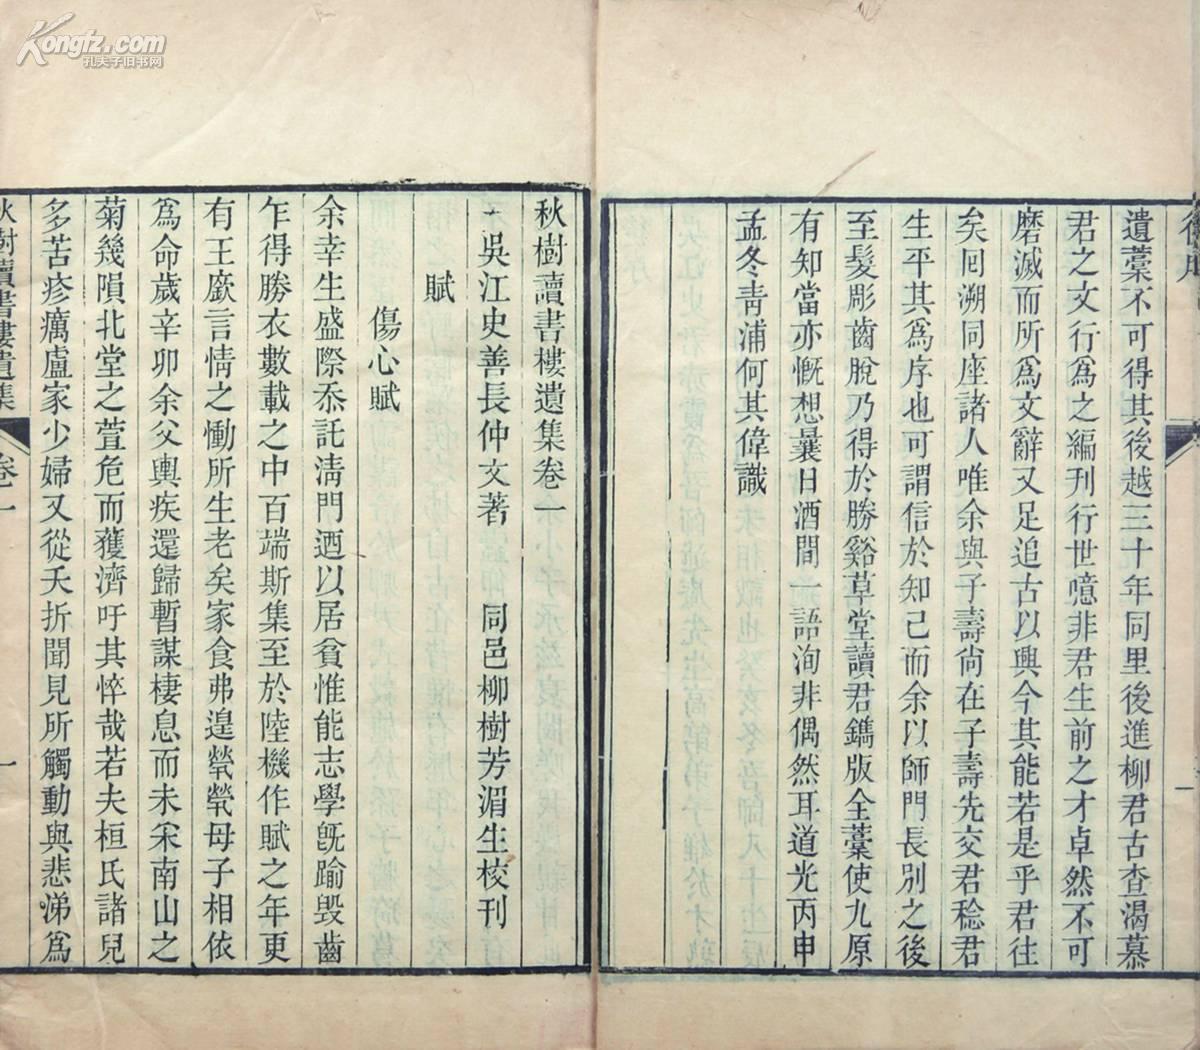 Kongfz.com
孔夫子旧书网
遺藁不可得其後越三十年同里後進柳君古查渴慕
君之文行爲之編刊行世噫非君生前之才卓然不可
磨滅而所爲文辭又足追古以興今其能若是乎君往
矣囘溯同座諸人唯余與子壽尙在子壽先交君稔君
生平其爲序也可謂信於知己而余以師門長別之後
至髮彫齒脫乃得於勝谿草堂讀君鐫版全藁使九原
有知當亦慨想曩日酒間一語洵非偶然耳道光丙申
孟冬靑浦何其偉識
秋樹讀書樓遺集卷一
吳江史善長仲文著 同邑柳樹芳湄生校刊
賦
傷心賦
余幸生盛際忝託淸門迺以居貧惟能志學旣踰毀齒
乍得勝衣數載之中百端斯集至於陸機作賦之年更
有王廞言情之慟所生老矣家食弗遑煢煢母子相依
爲命歲辛卯余父輿疾還歸暫謀棲息而未采南山之
菊幾隕北堂之萱危而獲濟吁其悴哉若夫桓氏諸兒
多苦疹癘盧家少婦又從夭折聞見所觸動與悲涕爲
秋樹讀書樓遺集 卷一 一